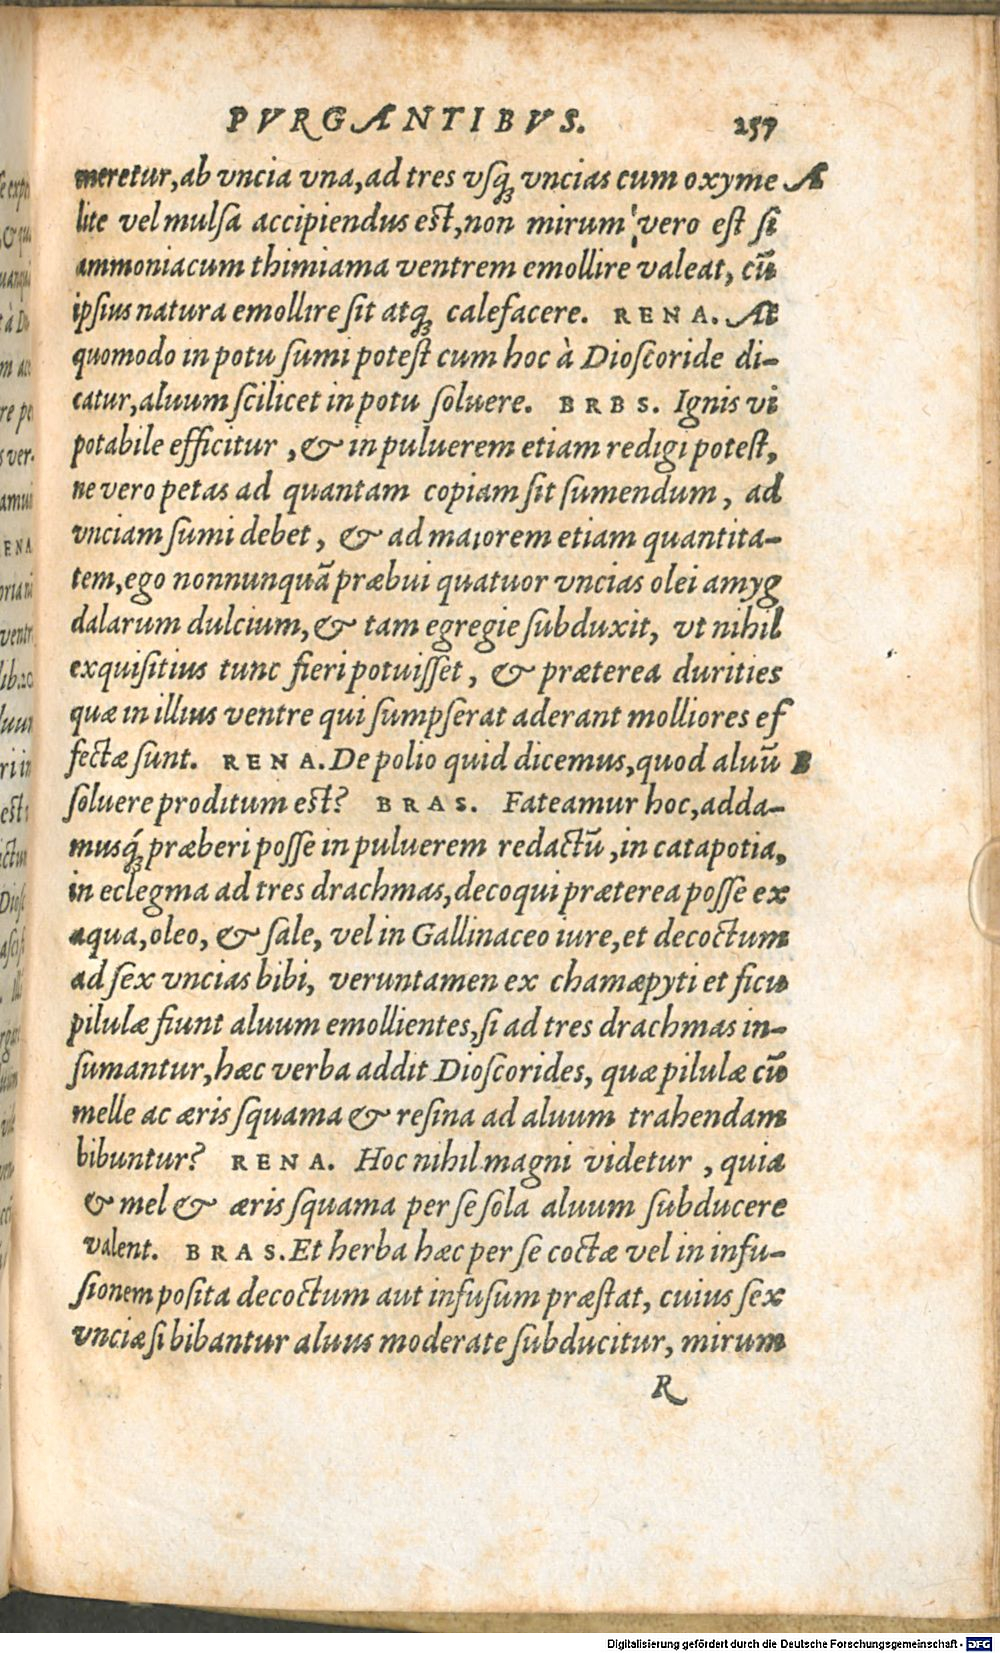 PVRGANTIBVS. 257
meretur, ab vncia vna, ad tres vsq́ vncias cum oxyme A
lite vel mulſa accipiendus eſt, non mirum vero eſt ſi
ammoniacum thimiama ventrem emollire valeat, cū
ipſius natura emollire ſit atq́ calefacere. RENA. At
quomodo in potu ſumi poteſt cum hoc à Dioſcoride di-
catur, aluum ſcilicet in potu ſoluere. BRBS. Ignis vi
potabile efficitur, & in puluerem etiam redigi poteſt,
ne vero petas ad quantam copiam ſit ſumendum, ad
vnciam ſumi debet, & ad maiorem etiam quantita-
tem, ego nonnunquā præbui quatuor vncias olei amyg
dalarum dulcium, & tam egregie ſubduxit, vt nihil
exquiſitius tunc fieri potuiſſet, & præterea durities
quæ in illius ventre qui ſumpſerat aderant molliores ef
fectæ ſunt. RENA. De polio quid dicemus, quod aluū B
ſoluere proditum eſt? BRAS. Fateamur hoc, adda-
musq́ præberi poſſe in puluerem redactū, in catapotia,
in eclegma ad tres drachmas, decoqui præterea poſſe ex
aqua, oleo, & ſale, vel in Gallinaceo iure, et decoctum
ad ſex vncias bibi, veruntamen ex chamæpyti et ficu
pilulæ fiunt aluum emollientes, ſi ad tres drachmas in-
ſumantur, hæc verba addit Dioſcorides, quæ pilulæ cū
melle ac æris ſquama & reſina ad aluum trahendam
bibuntur? RENA. Hoc nihil magni videtur, quia
& mel & æris ſquama per ſe ſola aluum ſubducere
valent. BRAS. Et herba hæc per ſe coctæ vel in infu-
ſionem poſita decoctum aut infuſum præſtat, cuius ſex
vnciæ ſi bibantur aluus moderate ſubducitur, mirum
R
Digitalisierung gefördert durch die Deutsche Forschungsgemeinschaft - DFG